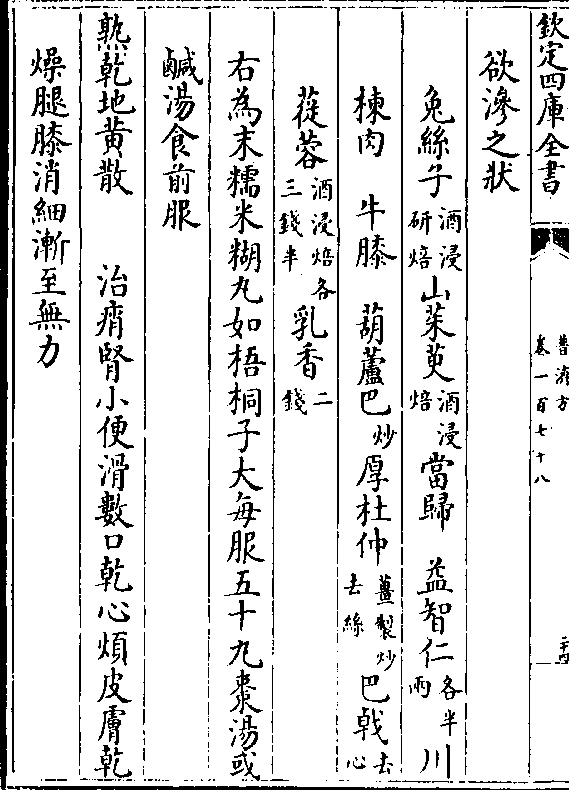 欽定四庫全書
普濟方
卷一百七十八
二十四
欲滲之狀
兔絲子酒浸研焙山茱萸酒浸焙當歸　益智仁各半兩川
楝肉　牛膝　葫蘆巴炒厚杜仲薑製炒去絲巴戟去心
蓯蓉酒浸焙各三錢半乳香二錢
右為末糯米糊丸如梧桐子大每服五十丸棗湯或
鹹湯食前服
熟乾地黃散　　治痟腎小便滑數口乾心煩皮膚乾
燥腿膝消細漸至無力